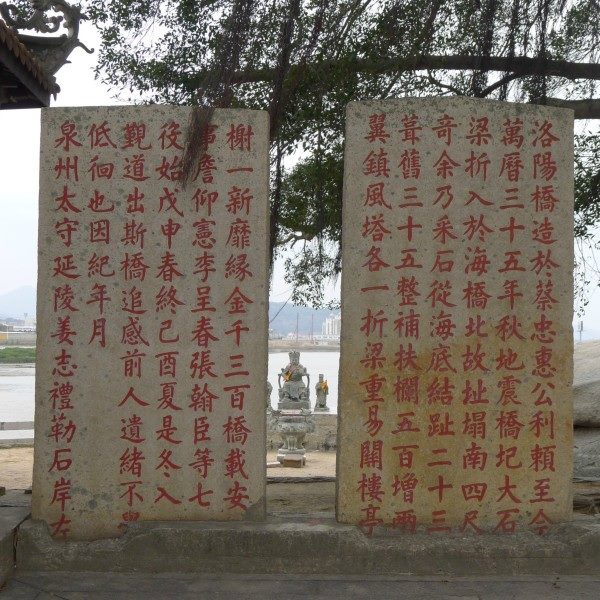 洛陽橋造於蔡忠惠公利賴至今
萬曆三十五年秋地震橋圯大石
梁折入於海橋北故址塌南四尺
奇余乃采石從海底結趾二十三
葺舊三十五整補扶欄五百增兩
翼鎮風塔各一折梁重易關樓亭
榭一新靡緣金千三百橋載安
事瞻仰憲李呈春張翰臣等七
役始戊申春終己酉夏是冬入
覲道出斯橋追感前人遺緒不
低徊也因紀年月
泉州太守延陵姜志禮勒石岸左